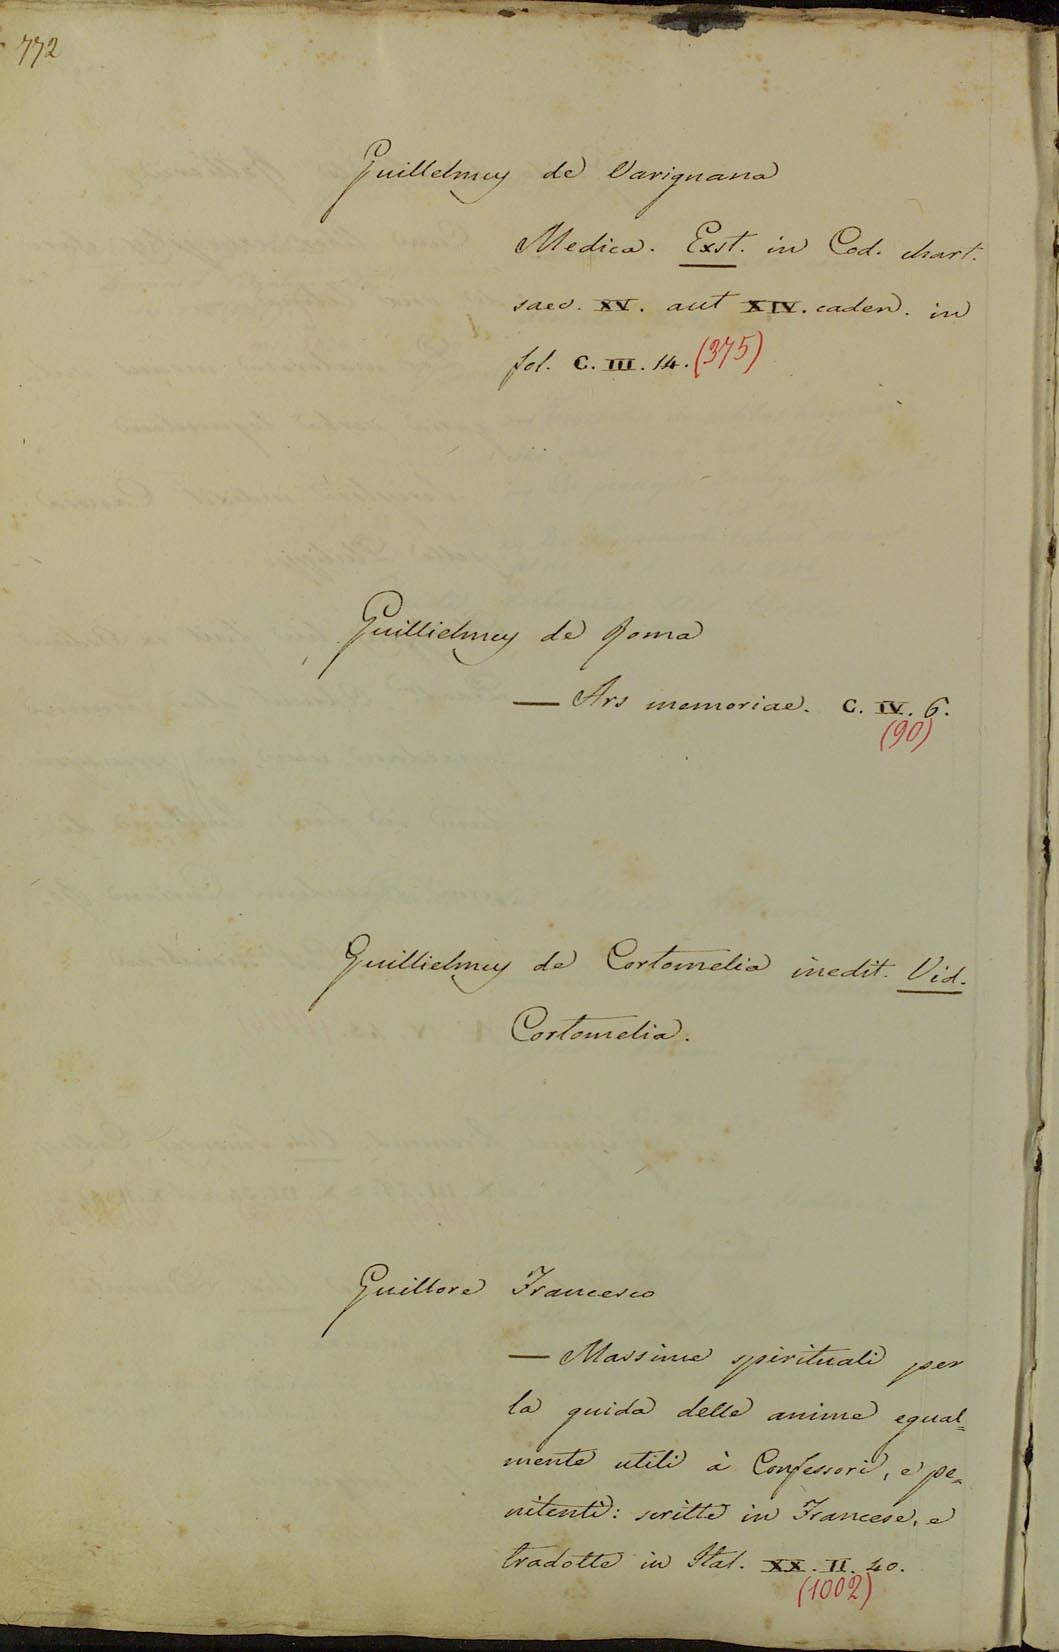 772
Guillelmus de Varignana
Medica. Exst. in Cod. chart.
saec. XV. aut XIV. caden. in
fol. C. III. 14. (375)
Guillielmus de Roma
— Ars memoriae. C. IV. 6.
(90)
Guillielmus de Cortomelia inedit. Vid.
Cortomelia.
Guillore Francesco
— Massime spirituali per
la guida delle anime egual=
mente utili à Confessori, e pe=
nitenti: scritte in Francese, e
tradotte in Ital. XX. II. 40.
(1002)